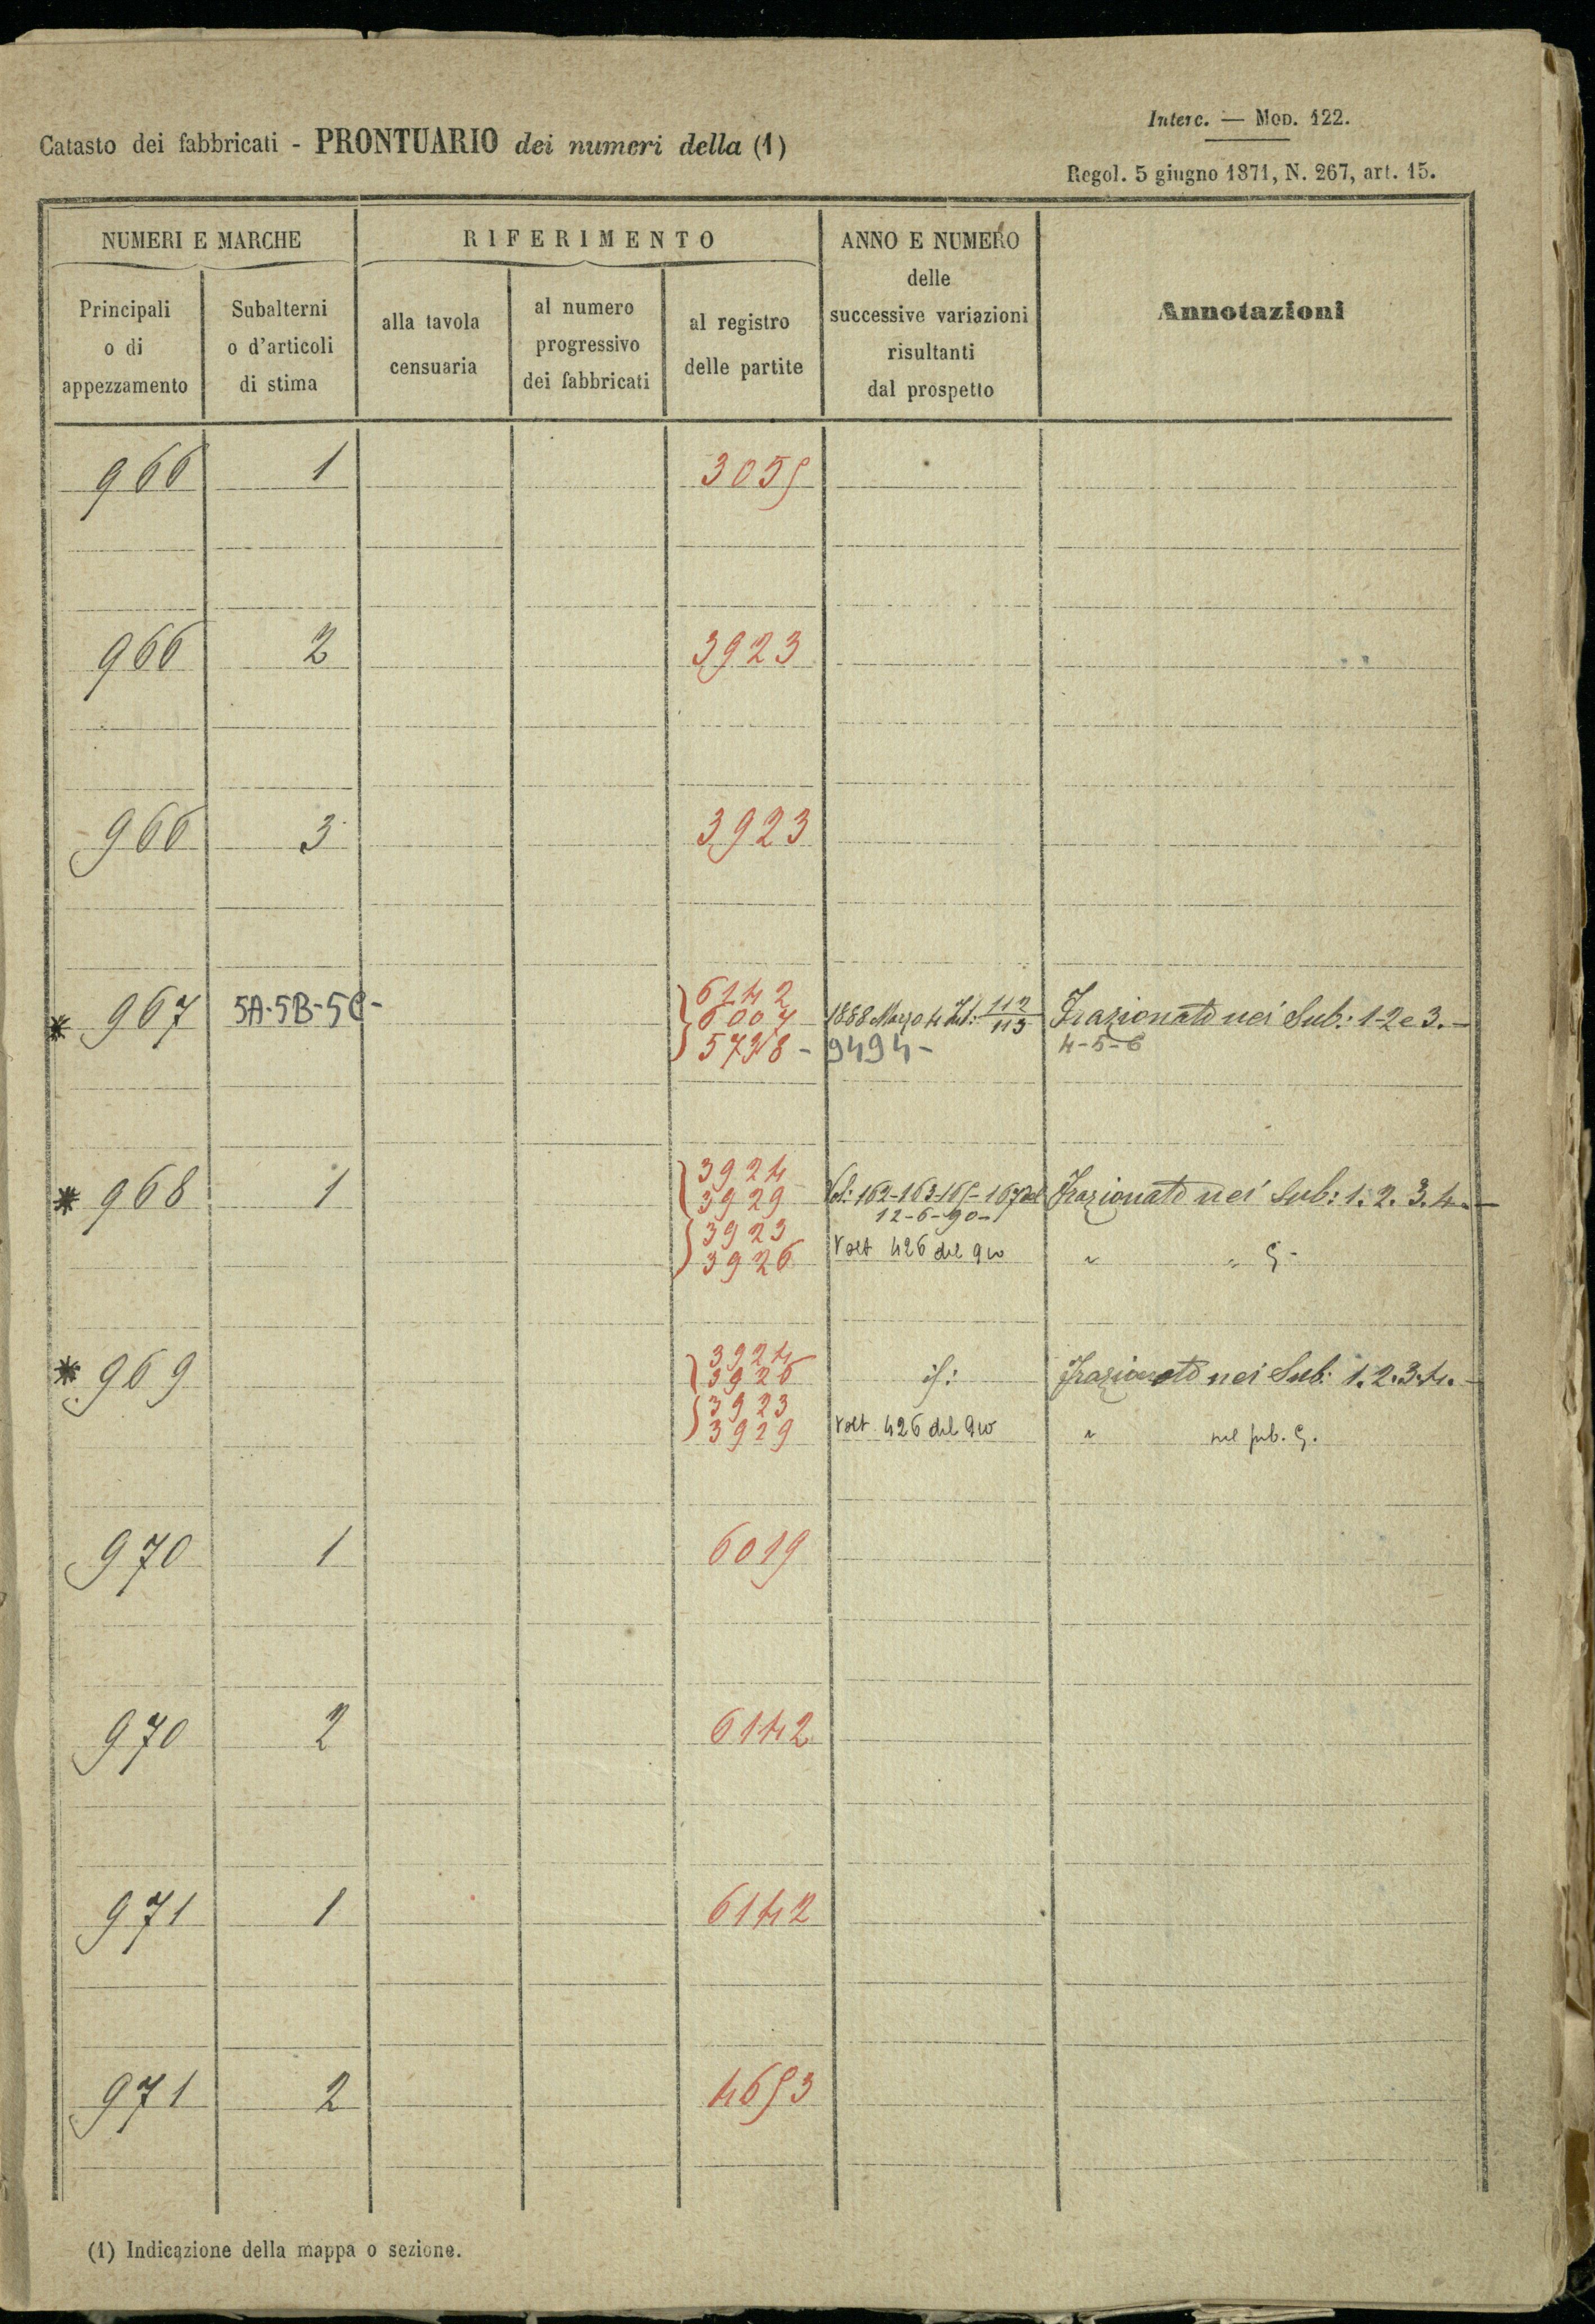 Catasto dei fabbricati - PRONTUARIO dei numeri della (1)
Interc. — Mod. 122.
Regol. 5 giugno 1871, N. 267, art. 15.
NUMERI E MARCHE
RIFERIMENTO
ANNO E NUMERO
delle
successive variazioni
risultanti
dal prospetto
Annotazioni
Principali
o di
appezzamento
Subalterni
o d'articoli
di stima
alla tavola
censuaria
al numero
progressivo
dei fabbricati
al registro
delle partite
966 1 3055
966 2 3923
966 3 3923
6142
* 967 5A-5B-5C- 6007 1888 Marzo 4 112/113 Frazionato nei Sub: 1-2 e 3.-
5738- 9494- 4-5-6
3924
* 968 1 3929 Vol: 162-163-165-167 del Frazionato nei Sub: 1. 2. 3. 4.-
12-6-90-
3923
3926 Volt 426 del 910 " " 5-
3924
* 969 3926 id: Frazionato nei Sub: 1. 2. 3. 4.-
3923
3929 Volt 426 del 910 " nel sub. 5.
970 1 6019
970 2 6142
971 1 6142
971 2 4653
(1) Indicazione della mappa o sezione.